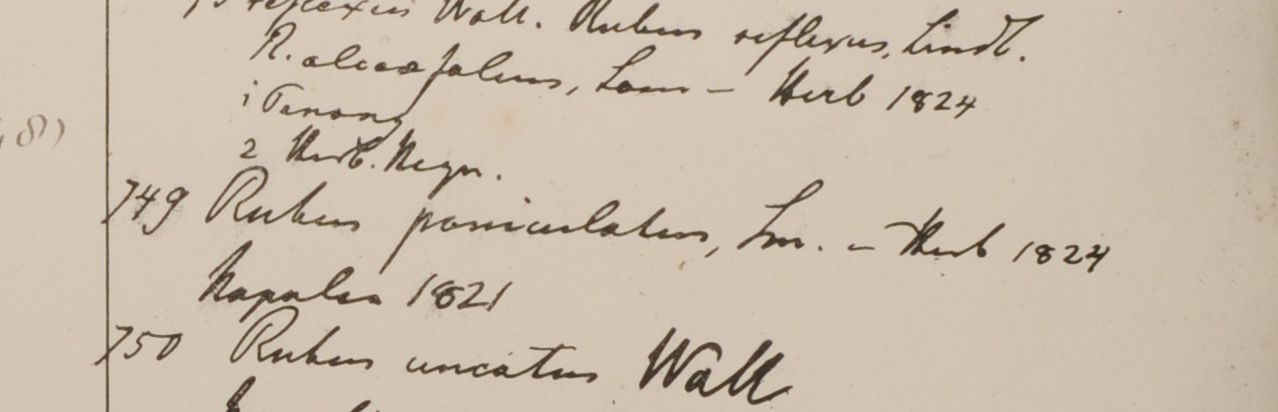 reflexus Wall. Rubus reflexus, Lindl.
R. alceaefolius, – Herb 1824
1 Penang
2 Herb. Heyn.
749 Rubus paniculatus, Sm. – Herb 1824
Napalia 1821
750 Rubus uncatus Wall